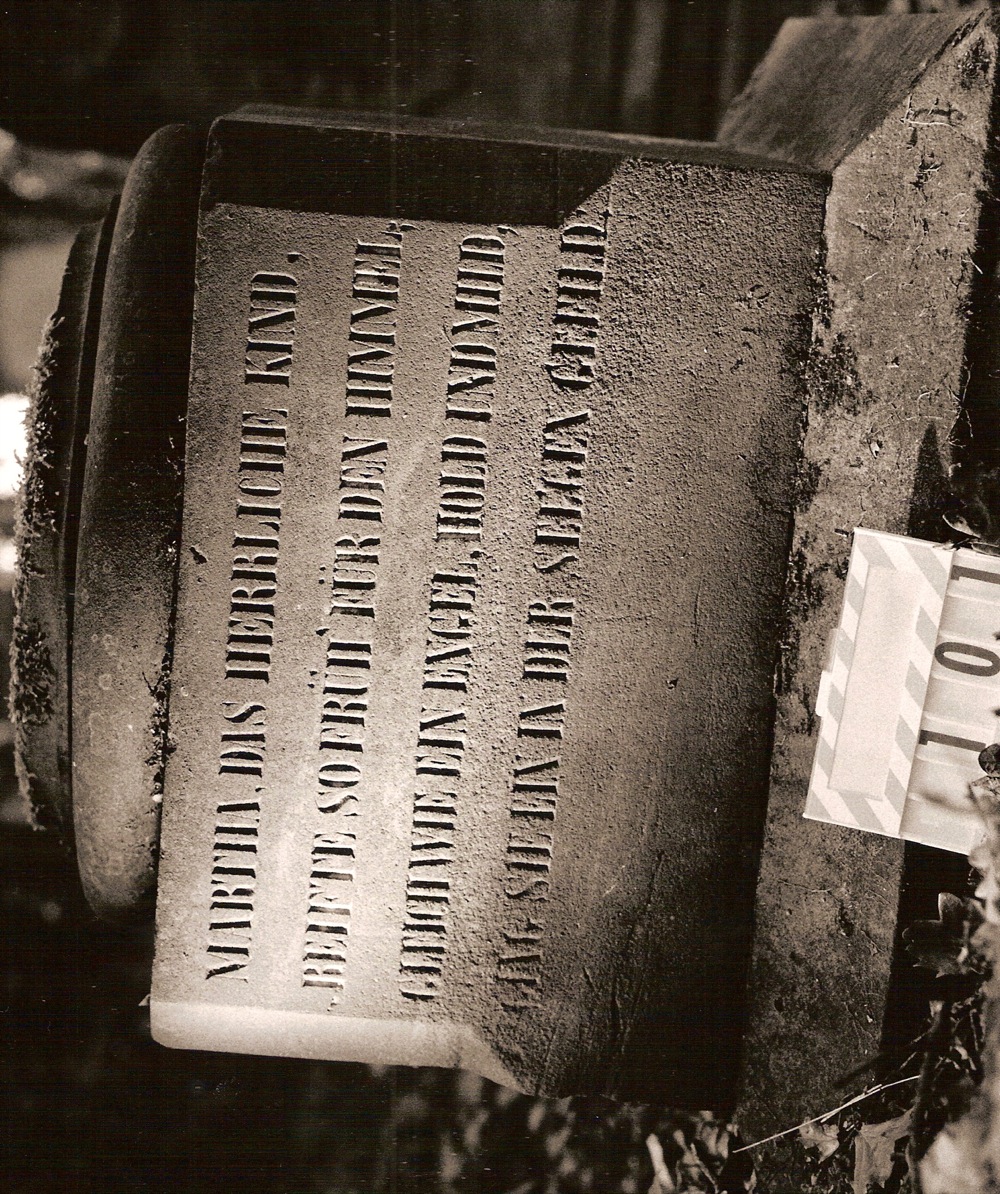 MARTHA, DAS HERRLICHE KIND,
REIFTE SO FRÜH FÜR DEN HIMMEL,
GLEICH WIE EIN ENGEL, HOLD UND MILD,
LAG SIE EIN IN DER SEEGEN GEFILD.
1101